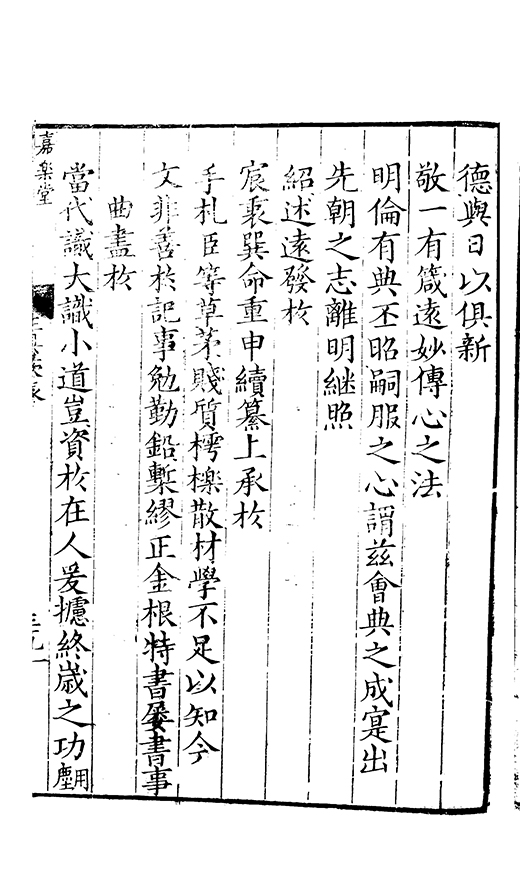 德與日以俱新
敬一有箴遠妙傳心之法
明倫有典丕昭嗣服之心謂兹會典之成寔出
先朝之志離明継照
紹述遠發於
宸衷巽命重申續纂上承於
手札臣等草茅賤质樗櫟散材學不足以知今
文非善於記事勉勤鉛槧繆正金根特書屡書事
曲盡於
當代識大識小道豈資於在人爰攄終歳之功用塵
嘉樂堂